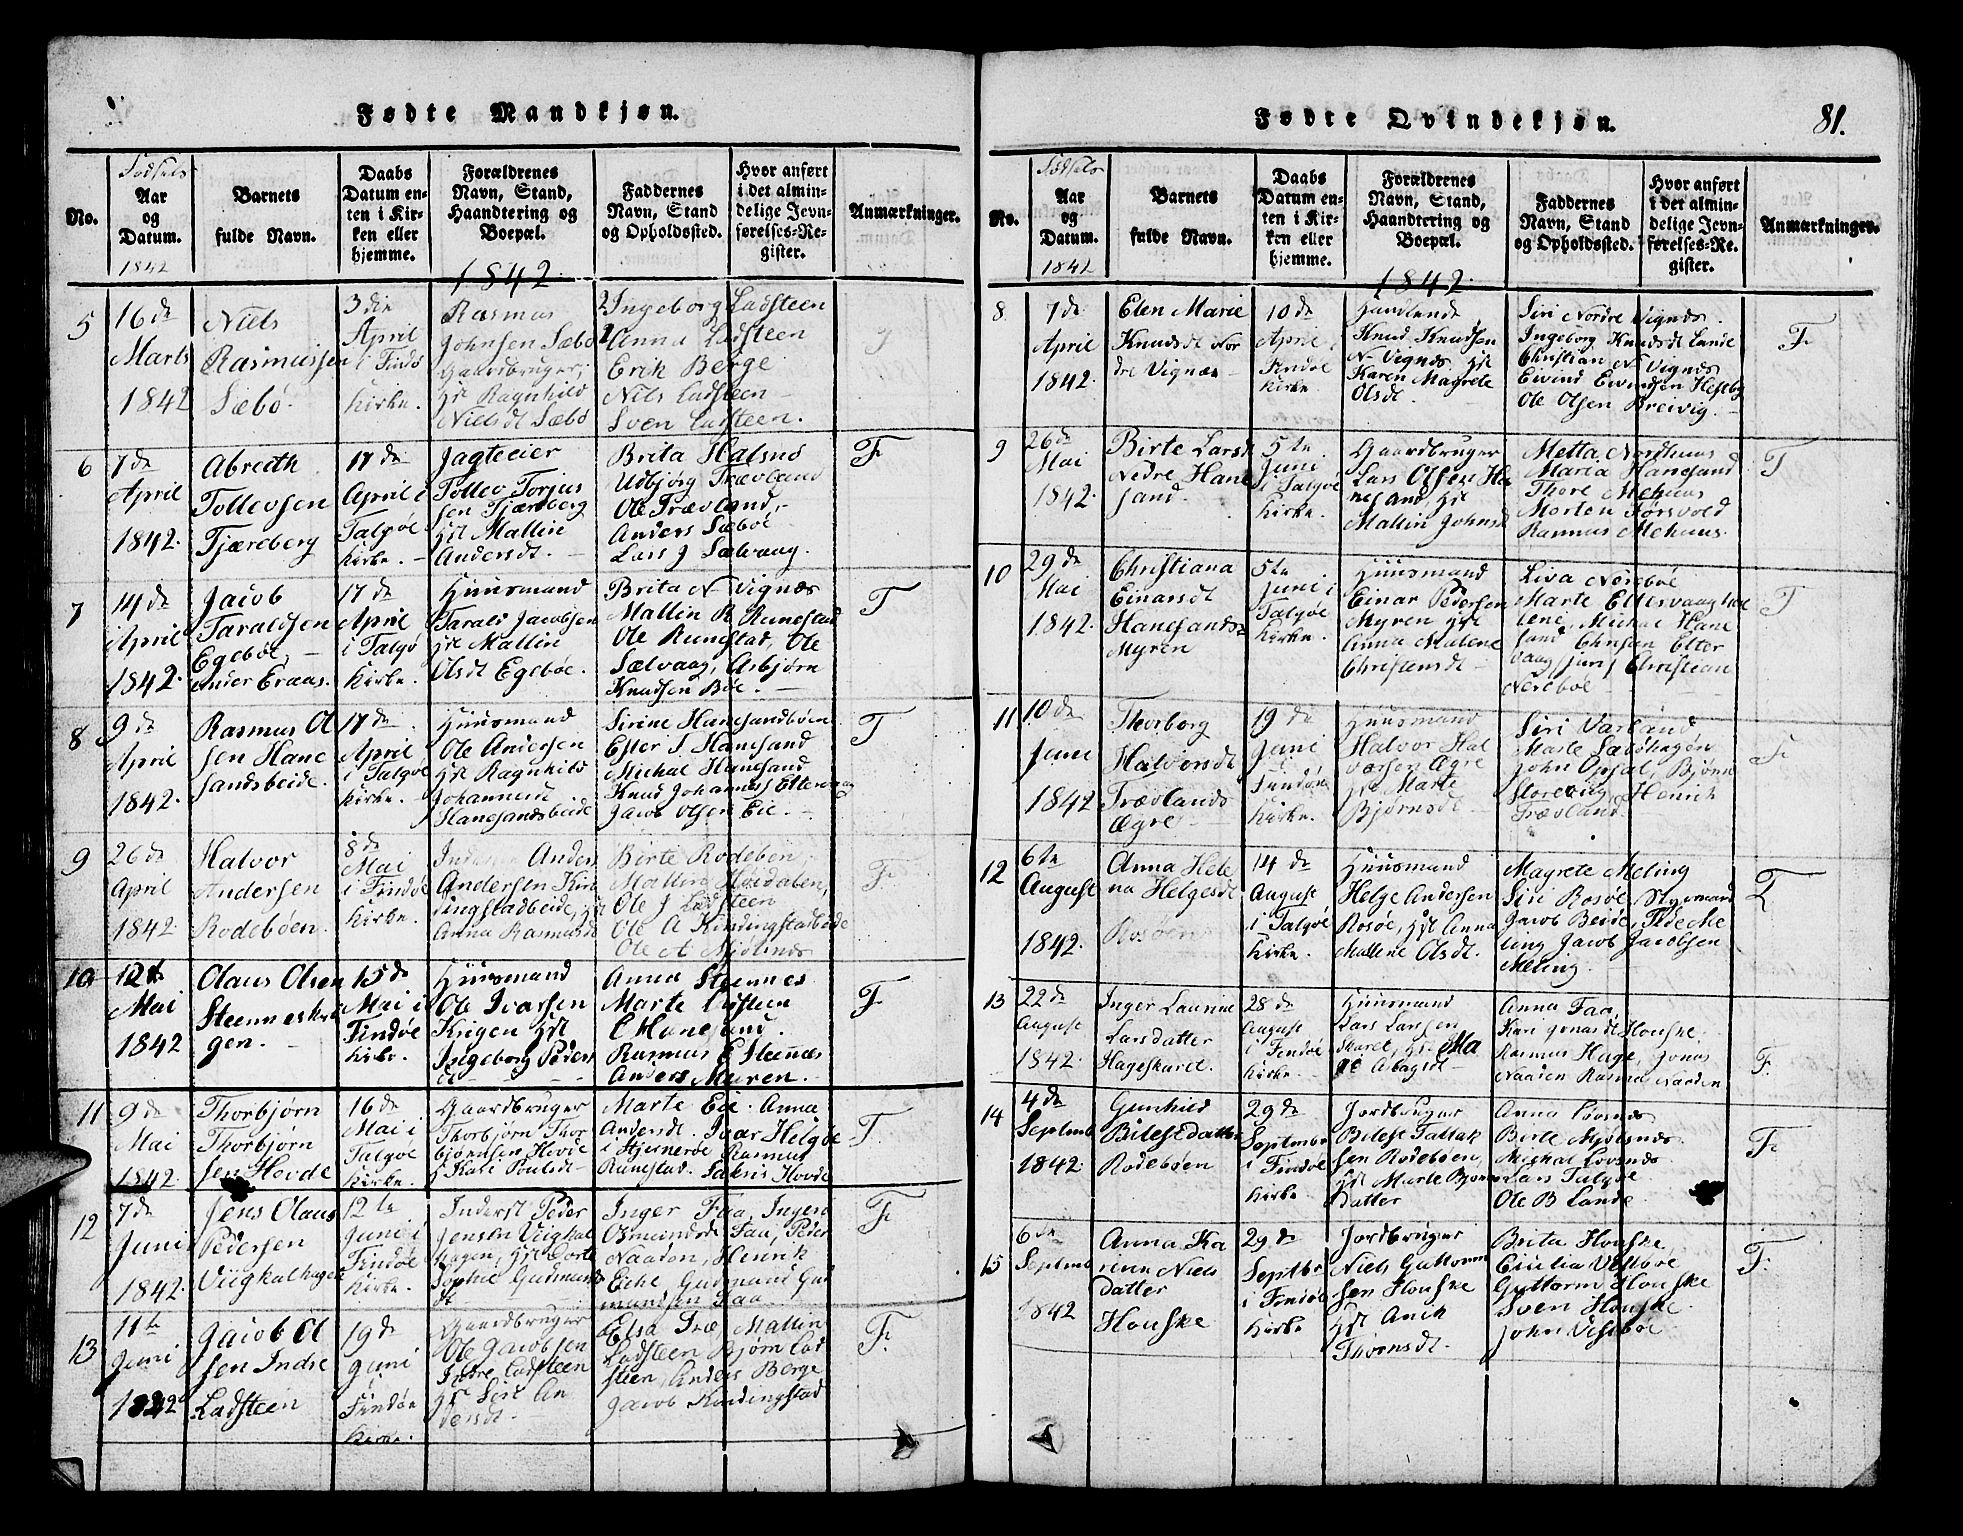 Fødte Mandkjøn.
No.
Fødsels
Aar
og
Datum.
1842
Barnets
fulde Navn.
Daabs
Datum en-
ten i Kir-
ken eller
hjemme.
Forældrenes
Navn, Stand,
Haandtering og
Boepæl.
1842.
Faddernes
Navn, Stand
og Opholdssted.
Hvor anført
i det almin-
delige Jevn-
førelses-Re-
gister.
Anmærkninger.
5
16de
Marts
1842
Niels
Rasmussen
Sæbø.
3die
April
i Findø
Kirke.
Rasmus
Johnsen Sæbø
Gaardbruger,
Hst Ragnhild
Nielsdt Sæbø
Ingeborg Ladsteen
Anna Ladsteen
Erik Berge
Nils Ladsteen
Sven Ladsteen.
6
7de
April
1842.
Abreth
Tollevsen
Tjæreberg
17de
April i
Talgøe
Kirke.
Jagteeier
Tollev Torjus
sen Tjæreberg
Hst Mallin
Andersdt.
Brita Halsnø
Udbjørg Trævland
Ole Trævland,
Anders Sæbøe
Lars J Sælvaag.
F
7
14de
April
1842.
Jacob
Taraldsen
Egebøe,
under Eraas.
17de
April
i Talgø
Kirke.
Huusmand
Tarald Jacobsen
Hst Mallin
Olsdt Egebøe.
Brita N Vignæs
Mallin R Runestad
Ole Runestad, Ole
Sælvaag, Asbjørn
Knudsen Bøe.
F
8
9de
April
1842.
Rasmus Ol
sen Hane
sandsbeide.
17de
April
i Talgøe
Kirke.
Huusmand
Ole Andersen
Hst Ragnhild
Johannesdt
Hanesandsbeide
Sirine Hanesandbøen
Ester J Hanesand
Michal Hanesand
Knud Johannes Eltervaag
Jacob Olsen Eie.
F
9
26de
April
1842.
Halvor
Andersen
Rodebøen.
8de
Mai
i Findøe
Kirke.
Inderst Anders
Andersen Kin
dingstadbeide, Hst
Anna Rasmusdt
Birte Rodebøen,
Mallin Høidalen,
Ole J Ladsteen
Ole A Kindingstadbeide
Ole A
F
10
Mai
1842
Claus Olsen
Steenneskri
gen.
15de
Mai i
Findøe
Kirke.
Huusmand
Ole Ivarsen
Krigen Hst
Ingeborg Peders
dt
Anna Steennes
Marte Ladsteen
E Hanesand.
Rasmus E Steennæs
Anders Myren.
F
11
9de
Mai
1842.
Thorbjørn
Thorbjørn
sen Hovde
16de
Mai i
Talgøe
Kirke.
Gaardbruger
Thorbjørn Thor
bjørnsen Hovde
H Kari Poulsdt
Marte Eie. Anna
Andersdt. Ivar Helgøe
i Stjernerøe Rasmus
Runestad. Sakris Hovde
F.
12
7de
Juni
1842.
Jens Claus
Pedersen
Viigkalhagen
12te
Juni i
Findøe
Kirke.
Inderst Peder
Jensen Viigkal
hagen, Hst Dorte
Sophie Gudmunds
dt
Inger Faa, Ingeri
Osmundsdt Faa, Peder
Naaden, Henrik
Eike, Gudmund Gud
mundsen Faa
F
13
11te
Juni
1842
Jacob Ol
sen Indre
Ladsteen
19de
Juni
i
Findøe
Kirke.
Gaardbruger
Ole Jacobsen
Indre Ladsteen
Hst Siri An
dersdt.
Elsa Træ, Mallin
Ladsteen Bjørn Lad
steen, Anders Berge
Jacob Kindingstad
F.
Fødte Qvindekjøn.
81.
No.
Fødsels
Aar
og
Datum.
1842
Barnets
fulde Navn.
Daabs
Datum en-
ten i Kir-
ken eller
hjemme.
Forældrenes
Navn, Stand,
Haandtering og
Boepæl.
1842.
Faddernes
Navn, Stand
og Opholdssted.
Hvor anført
i det almin-
delige Jevn-
førelses-Re-
gister.
Anmærkninger.
8
7de
April
1842.
Elen Marie
Knudsdt Nor
dre Vignæs
10de
April i
Findøe
Kirke.
Handlende
Knud Knudsen
N Vignæs Hst
Karen Magrete
Olsdt.
Siri Nordre Vignæs.
Ingeborg Knudsdt Lande
Christian N Vignæs
Eivind Eivindsen Hestby
Ole Olsen Breivig.
F
9
26de
Mai
1842.
Birte Larsdt
Nedre Hane
sand.
5te
Juni
i Talgøe
Kirke.
Gaardbruger
Lars Olsen Ha
nesand, Hst
Mallin Johnsdt
Metta Nordhuus
Maria Hanesand
Thore Mehuus
Morten Forsvold
Rasmus Mehuus.
F
10
29de
Mai
1842.
Christiana
Einarsdt
Hanesands
Myren
5te
Juni i
Talgøe
Kirke.
Huusmand
Einar Pedersen
Myren Hst
Anna Malene
Christensdt
Liva Nerebøe
Marte Eltervaag Hal
lene, Michal Hane
sand Christen Elter
vaag Juni, Christian
Nerebøe
F
11
10de
Juni
1842
Thorborg
Halvorsdt
Trævlands
Øgre
19de
Juni
i
Findøe
Kirke.
Huusmand
Halvor Hal
vorsen Øgre
Hst Marte
Bjørnsdt
Siri Varland
John Opsal, Bjørn
Storeng, Henrik
Trævland.
F
12
6te
August
1842.
Anna Hele
na Helgesdt
Rosøen
14de
August
i Talgøe
Kirke.
Huusmand
Helge Andersen
Rosøe, Hst Anna
Mallene Olsdt.
Magrete Meling
Siri Rosøe, Styrmand
Jacob Beide, Peder Me
ling Jacob Jacobsen
Meling.
F
13
22de
August
1842.
Inger Laurine
Larsdatter
Hageskaret.
28de
August
i Findøe
Kirke.
Huusmand
Lars Larssen
skaret, Hst Ma
Anna Faa,
Kari Jonasdt Houske.
Rasmus Hage, Jonas
Naaden Rasmus Naaden
F.
14
4de
Septemb
1842.
Gunhild
Biletsdatter
Rodebøen
29de
Septembr
i Findøe
Kirke.
Jordbruger
Rodebøen,
Hst Marte Bjørns
datter
Anna Lovsnæs
Birte
Michal Lovsnæs
Lars Talgøe
Ole B Lande.
F
15
6de
Septemb
1842
Anna Ka
rena Niels
datter
Houske
29de
Septbr
i Findøe
Kirke
Jordbruger
Niels Guttorm
sen Houske
Hst Anik
Thornsdt.
Brita Houske
Cicilia Vestbøe
Guttorm Houske
Sven Houske.
John Vestbøe
F.